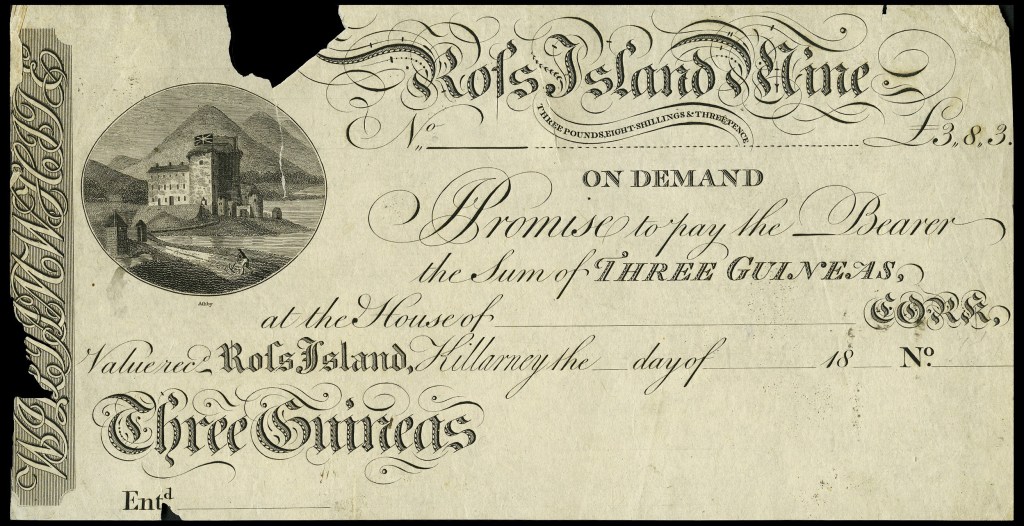 Roſs Island Mine
No.
THREE POUNDS, EIGHT-SHILLINGS & THREEPENCE
£3,,8,,3.
ON DEMAND
I Promise to pay the Bearer
the Sum of THREE GUINEAS,
at the House of CORK,
Value recd. Roſs Island, Killarney the day of 18 No.
Three Guineas
Entd
Ashby